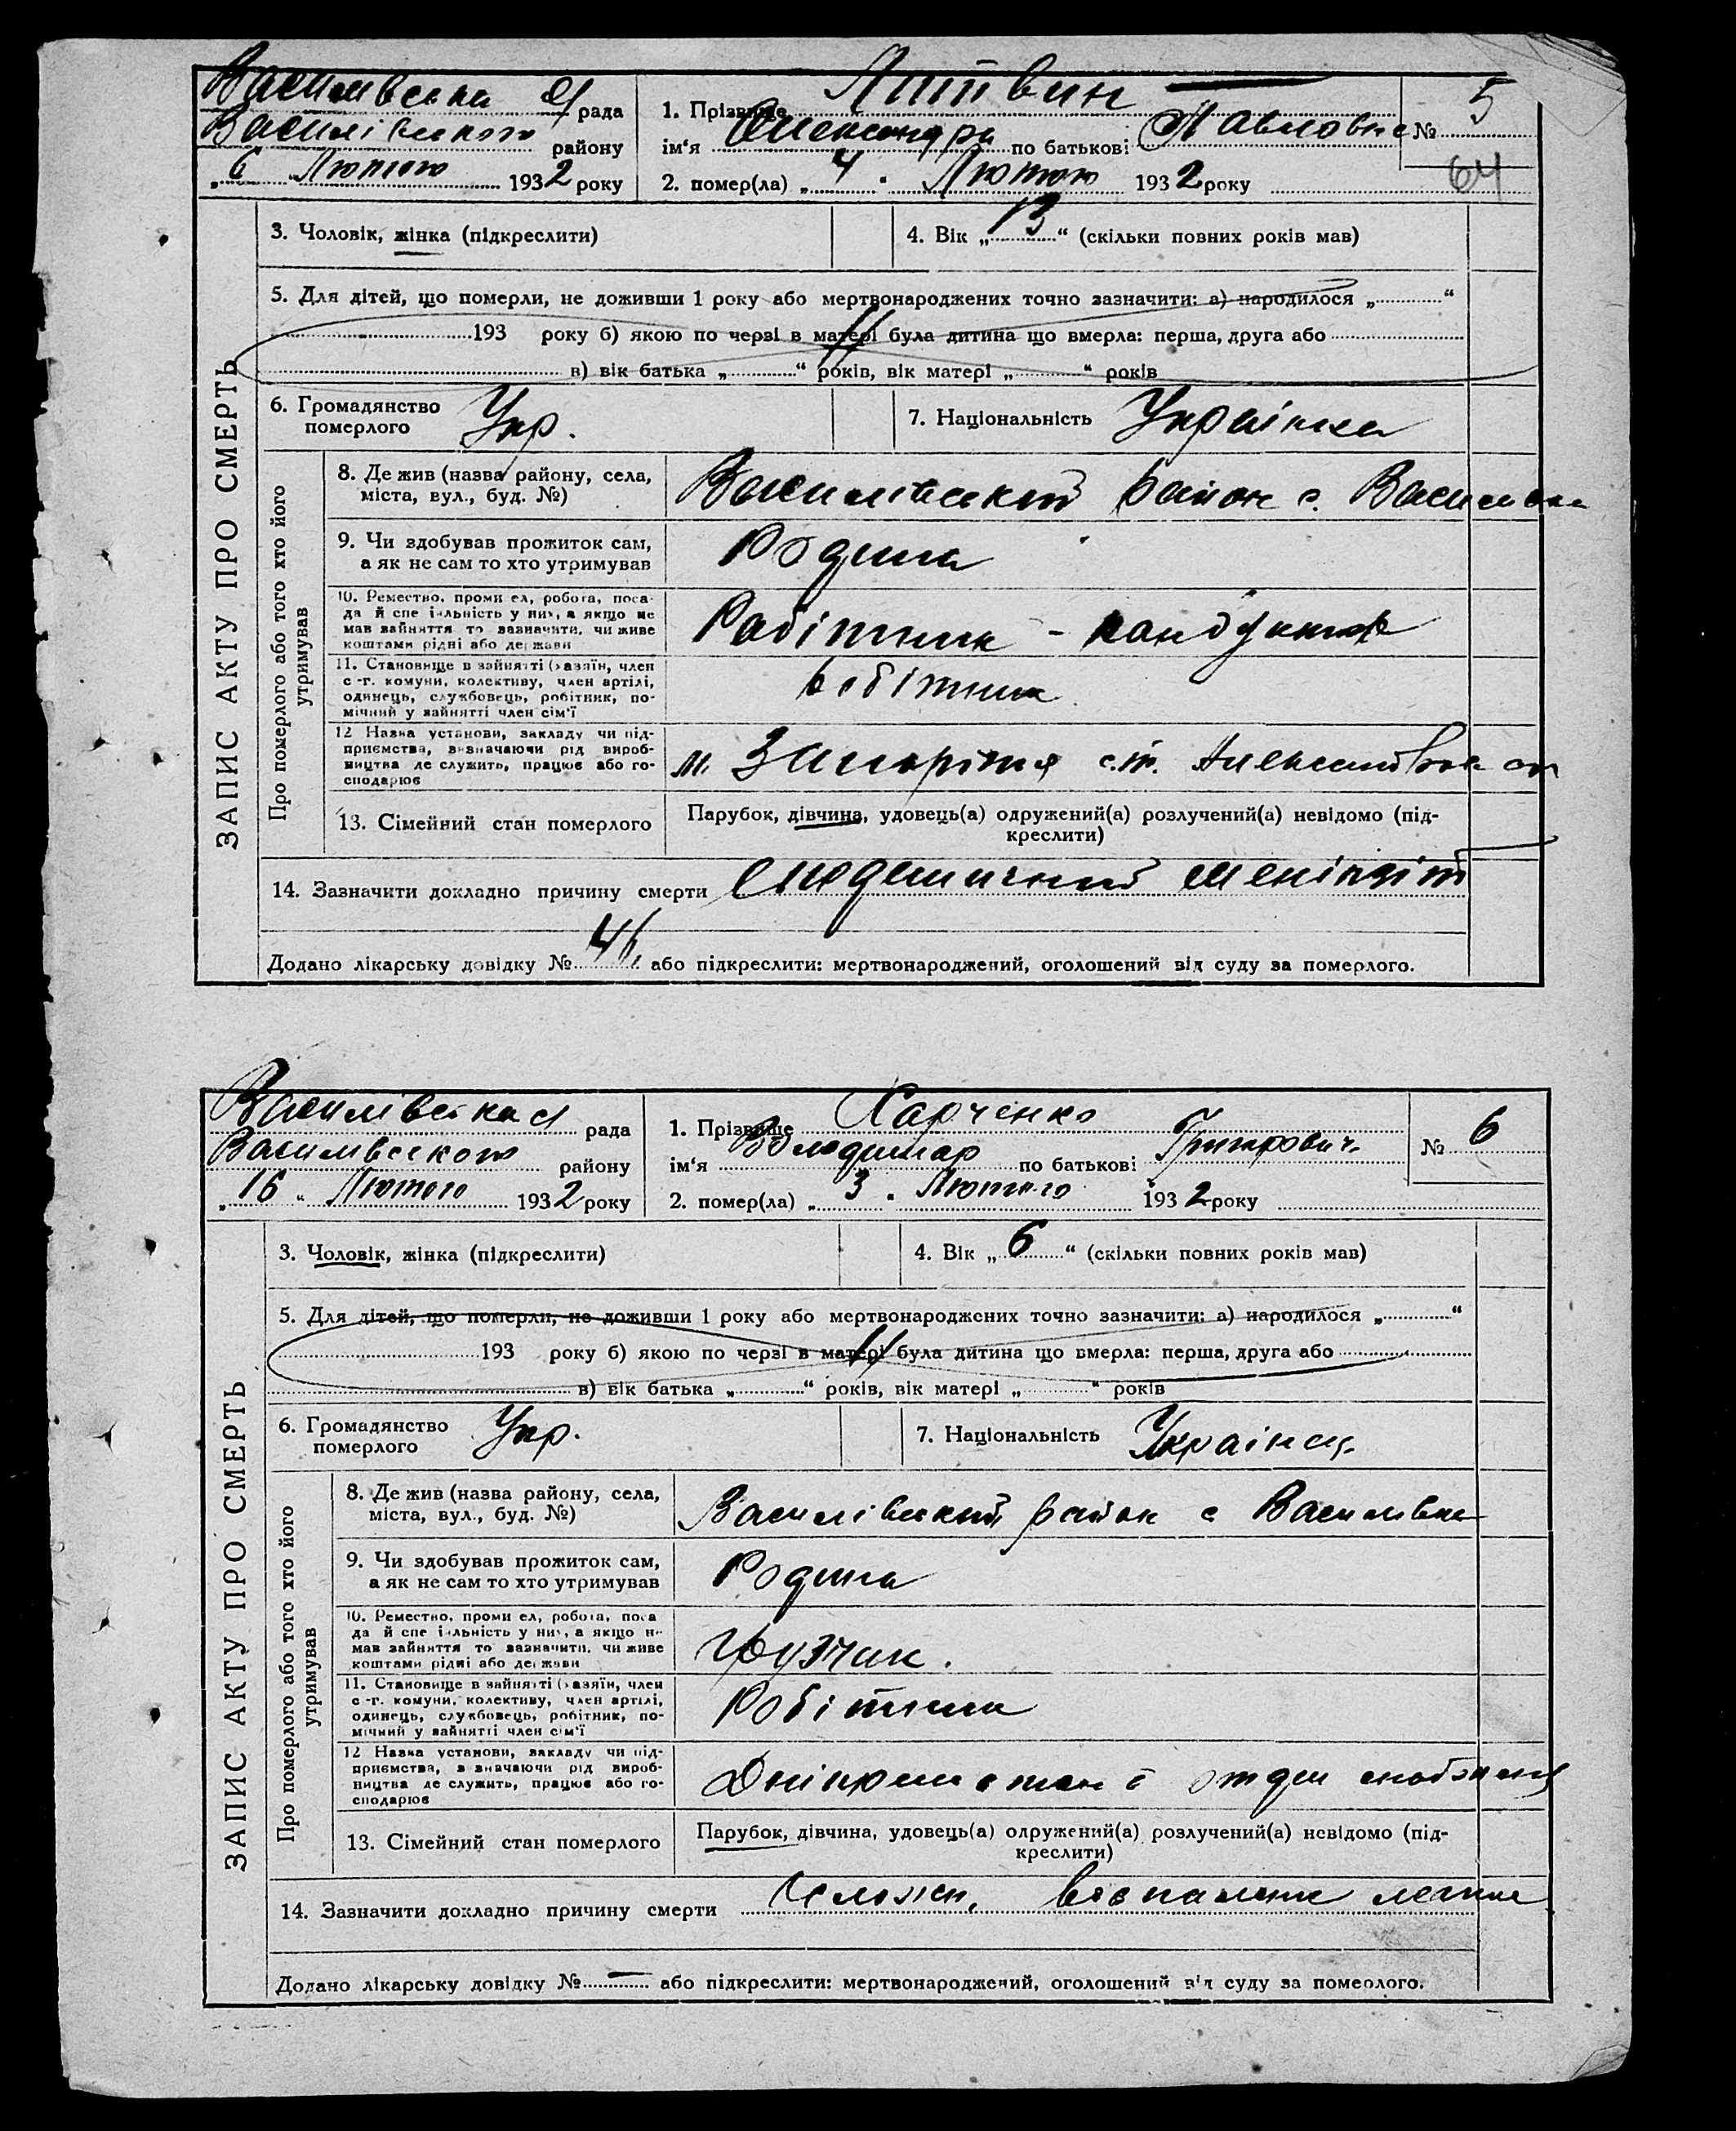 Василівська рада
Василівського району
„6“ Лютого 1932 року
1. Прізвище Литвин
ім‘я Олександра по батькові Павловна
2. помер(ла) „4“ Лютого 1932 року
№ 5
64
ЗАПИС АКТУ ПРО СМЕРТЬ
3. Чоловік, жінка (підкреслити)
4. Вік „13“ (скільки повних років мав)
5. Для дітей, що померли, не доживши 1 року або мертвонароджених точно зазначити: а) народилося „ “
193 року б) якою по черзі в матері була дитина що вмерла: перша, друга або
в) вік батька „ “ років, вік матері „ “ років
6. Громадянство
померлого
Укр.
7. Національність Українка
Про померлого або того хто його
утримував
8. Де жив (назва району, села,
міста, вул., буд. №)
Василівський район с. Василівка
9. Чи здобував прожиток сам,
а як не сам то хто утримував
Родина
10. Ремество, проми ел, робота, поса-
да й спе іяльність у них, а якщо не
мав зайняття то зазначити, чи живе
коштами рідні або держави
Робітник - кондуктор
11. Становище в зайнятті (хазяїн, член
с.-г. комуни, колективу, член артілі,
одинець, службовець, робітник, по-
мічний у зайнятті член сім‘ї
робітник
12 Назва установи, закладу чи під-
приємства, визначаючи рід вироб-
ництва де служить, працює або го-
сподарює
м. Запоріжжя ст.
13. Сімейний стан померлого
Парубок, дівчина, удовець(а) одружений(а) розлучений(а) невідомо (під-
креслити)
14. Зазначити докладно причину смерти менінгіт
Додано лікарську довідку № або підкреслити: мертвонароджений, оголошений від суду за померлого.
Василівська рада
Василівського району
„16“ Лютого 1932 року
1. Прізвище Харченко
ім‘я Володимар по батькові Григорович
2. помер(ла) „3“ Лютого 1932 року
№ 6
ЗАПИС АКТУ ПРО СМЕРТЬ
3. Чоловік, жінка (підкреслити)
4. Вік „6“ (скільки повних років мав)
5. Для дітей, що померли, не доживши 1 року або мертвонароджених точно зазначити: а) народилося „ “
193 року б) якою по черзі в матері була дитина що вмерла: перша, друга або
в) вік батька „ “ років, вік матері „ “ років
6. Громадянство
померлого
Укр.
7. Національність Українец.
Про померлого або того хто його
утримував
8. Де жив (назва району, села,
міста, вул., буд. №)
Василівський район с Василівка
9. Чи здобував прожиток сам,
а як не сам то хто утримував
Родина
10. Ремество, проми ел, робота, поса
да й спе іяльність у них, а якщо не
мав зайняття то зазначити, чи живе
коштами рідні або держави
Грузчик.
11. Становище в зайнятті (хазяїн, член
с.-г. комуни, колективу, член артілі,
одинець, службовець, робітник, по-
мічний у зайнятті член сім‘ї
Робітник
12 Назва установи, закладу чи під-
приємства, визначаючи рід вироб-
ництва де служить, працює або го-
сподарює
отдел снабжения
13. Сімейний стан померлого
Парубок, дівчина, удовець(а) одружений(а) розлучений(а) невідомо (під-
креслити)
14. Зазначити докладно причину смерти воспаление легких
Додано лікарську довідку № — або підкреслити: мертвонароджений, оголошений від суду за померлого.